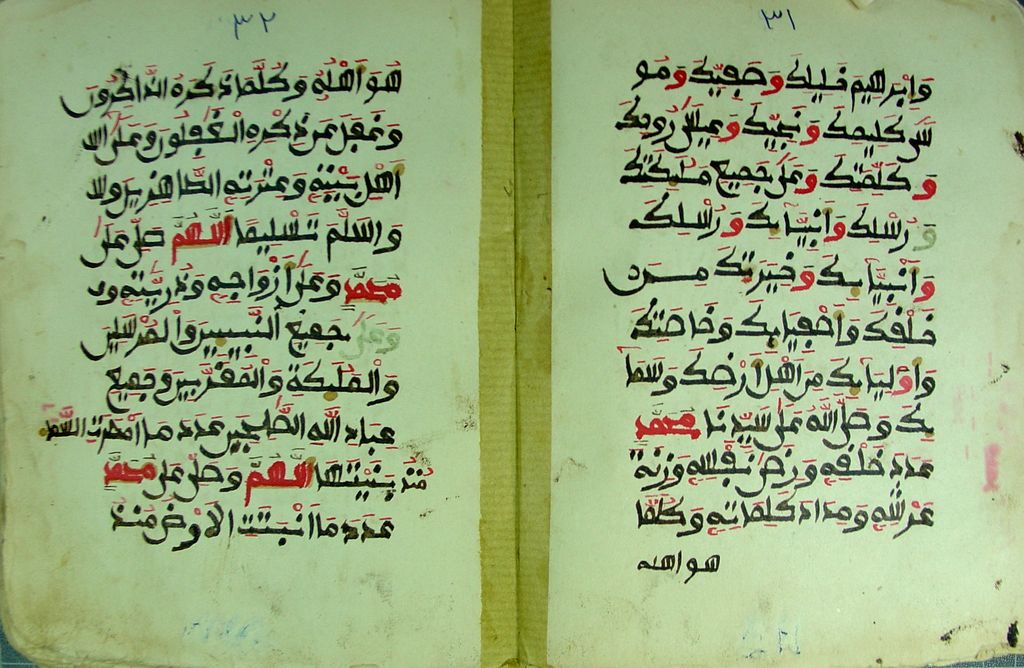 ٣١
وَابرهيم خليلك وصفيّك ومو
سَى كليمك ونجيّك وعيسى روحك
وكلمتك وعلى جميع ملٰئكتك
ورُسْلك وَانبيَآيك ورُسْلك
وَانْبيَآيك وخيرتك مـــن
خلفك وَاَصْفيَايك وخاصتك
وَاوْليَايك مِن اهْل اَرْضك وسَما
يك وصَلّى اللّه على سَيّدنا محمّد
عدد خلفه ورضى نفسه وزنة
عرشه ومداد كلماته وكلّما
هو اهله
٣٢
هُوَ اهْلُه وَكُلّمَا ذكَرهُ الذَّاكرُون
وَغفل عن ذكْره الْغٰفلُون وعلى
اهْل بيْته وعتْرته الطّاهرين وسـ
وَالسَلّم تَسْليمًا اللّهُمَّ صَلّ على
محمّد وعلى اَزْواجه وذرّيّته و
وعلى جميع النّبيين والمرسلين
وَالْملٰيكة وَالْمفرّبين وجميع
عباد اللّه الصَّالحين عدد ما امْطرت السَّمَا
مُنذ بنيْتها اللّهُمَّ وصَلّ على محمّد
عدد ما اَنْبتَت الارْض منذ